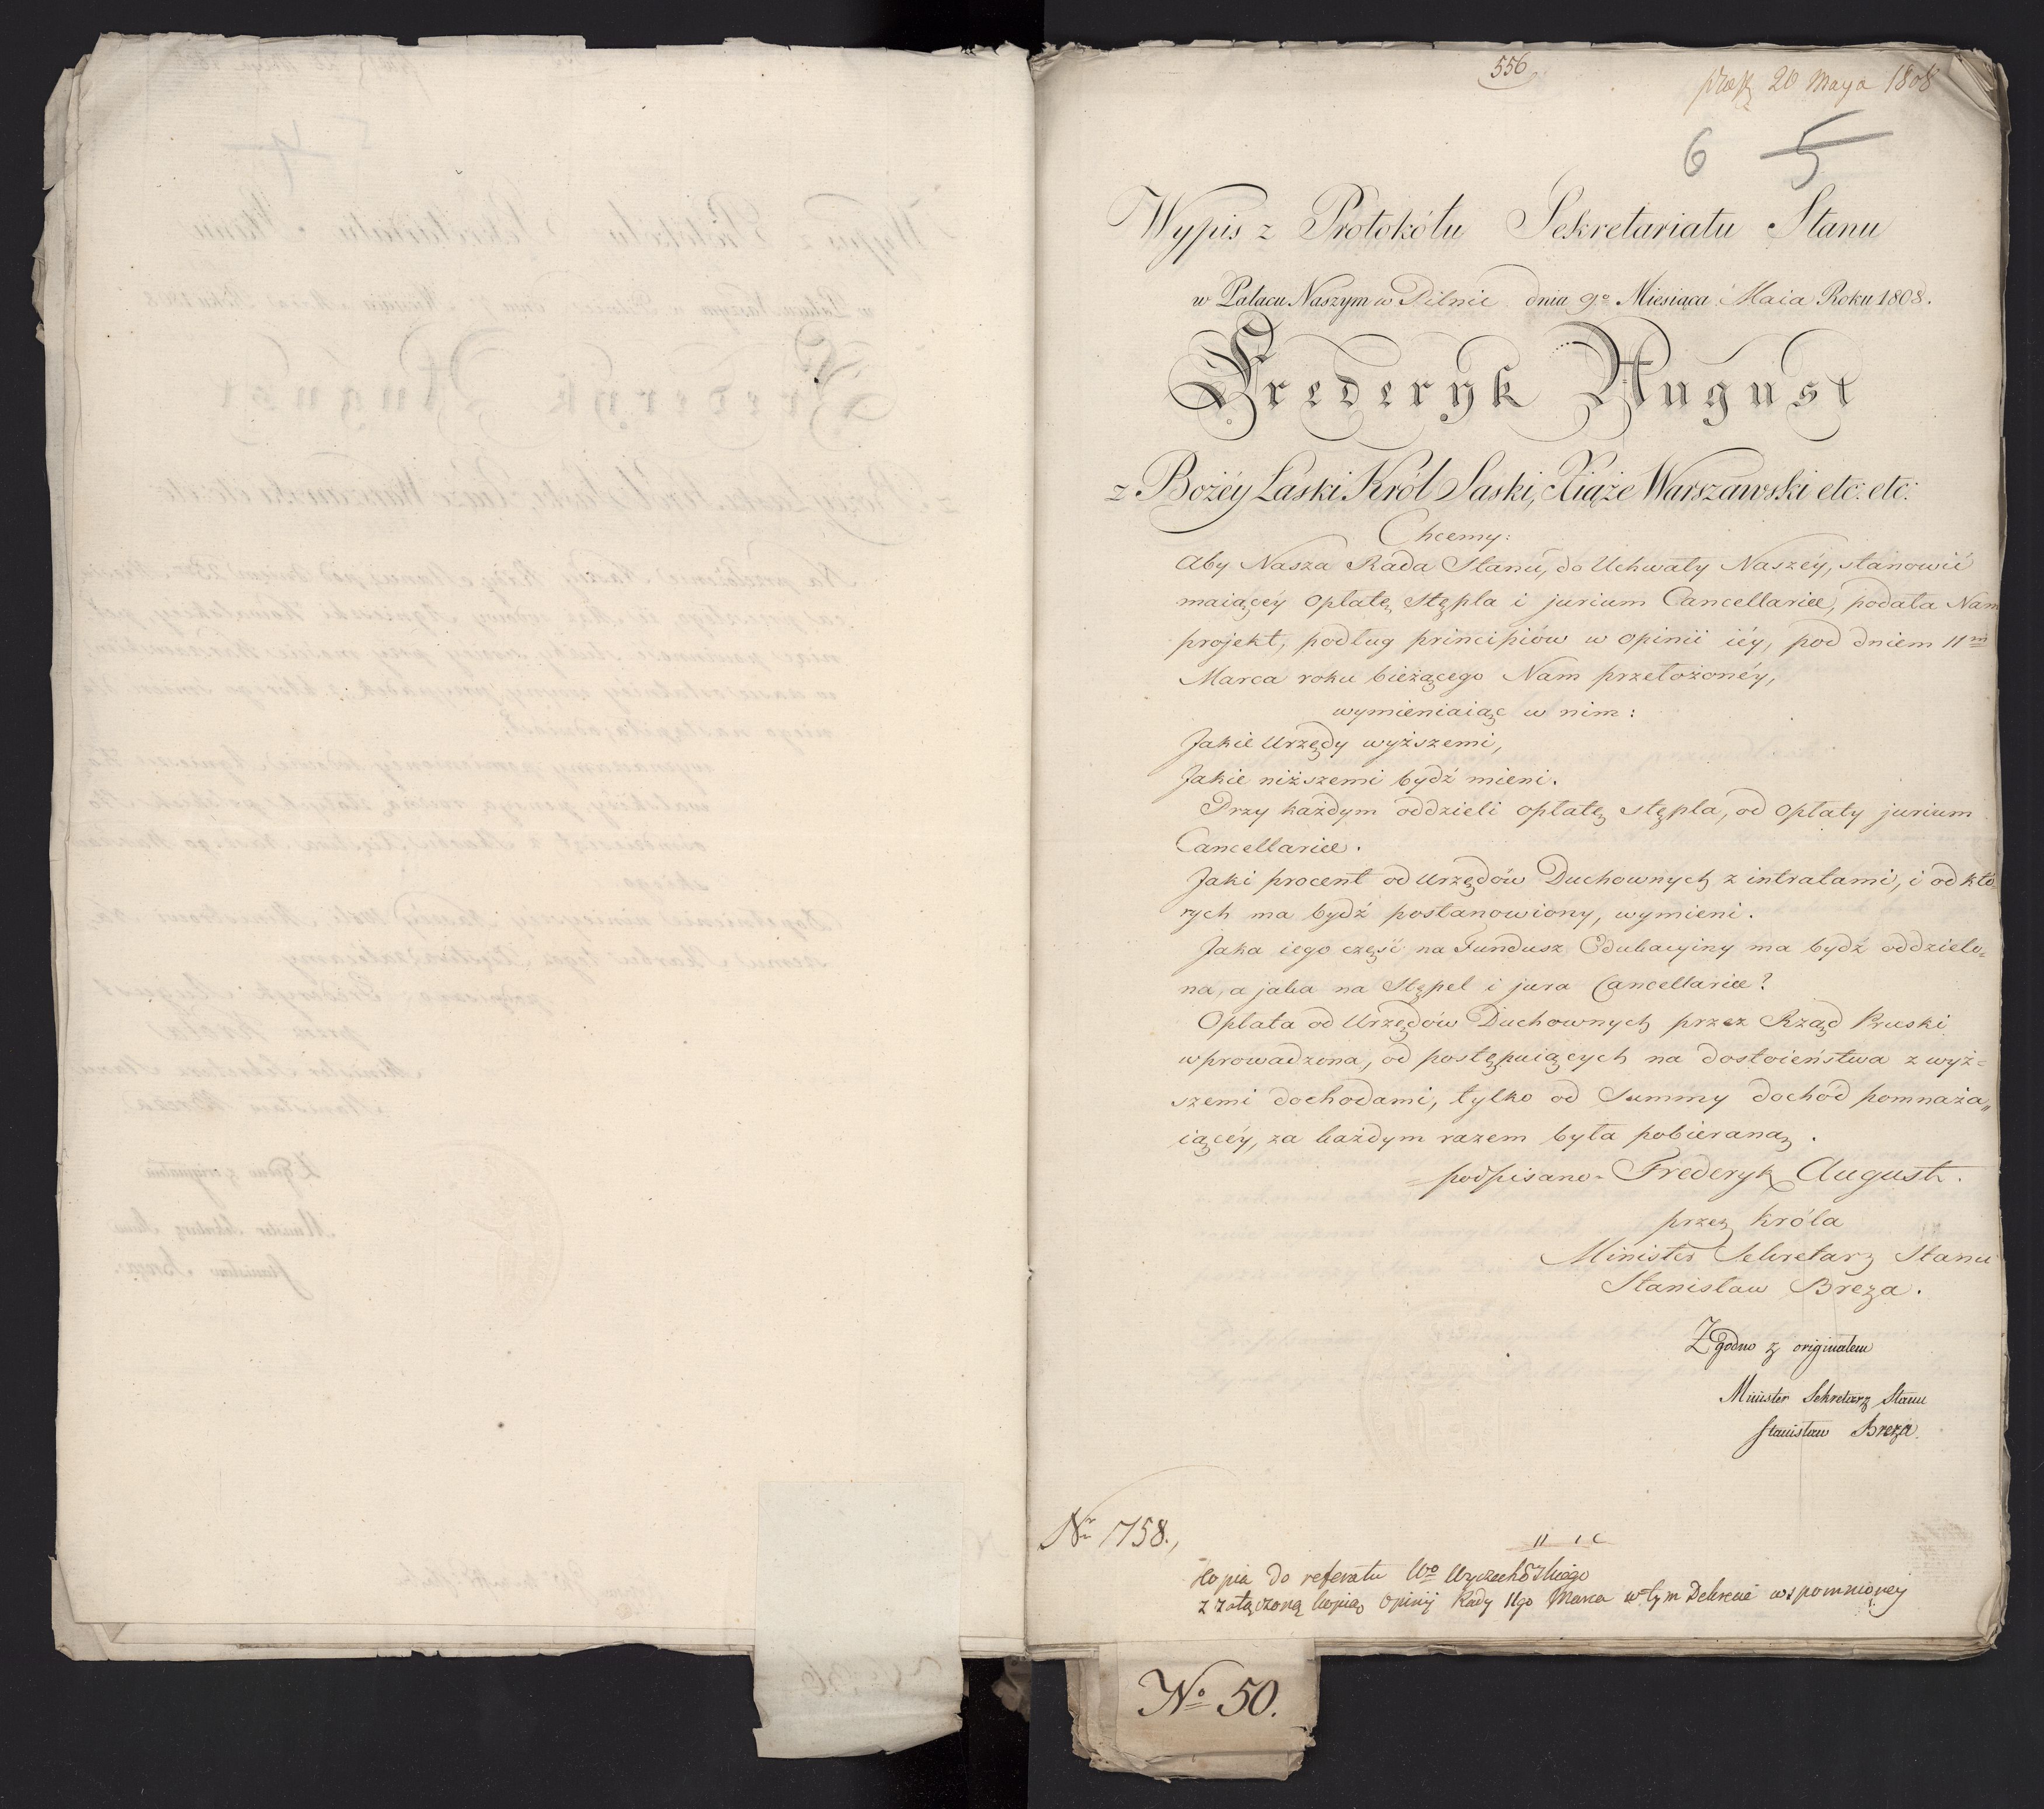 556
20 Maya 1808
6 5
Wypis z Protokółu Sekretariatu Stanu
w Pałacu Naszym w Pilnic dnia 9º Miesiąca Maia Roku 1808.
Frederyk August
z Bożéy Łaski Król Saski, Xiąże Warszawski etc: etc:
Chcemy:
Aby Nasza Rada Stanu, do Uchwały Naszéy, stanowić
maiącéy opłatę stępla i jurium Cancellariæ, podała Nam
projekt, podług principiów w opinii iéy, pod dniem 11m
Marca roku bieżącego Nam przełożonéy,
wymieniaiąc w nim:
Jakie Urzędy wyższemi,
Jakie niższemi bydź mieni.
Przy każdym oddzieli opłatę stępla, od opłaty jurium
Cancellariæ.
Jaki procent od Urzędów Duchownych z intratami, i od któ-
rych ma bydź postanowiony, wymieni.
Jaka iego część na Fundusz Edukacyiny ma bydź oddzielo=
na, a jaka na Stępel i jura Cancellariæ?
Opłata od Urzędów Duchownych przez Rząd Pruski
wprowadzona, od postępuiących na dostoieństwa z wyż=
szemi dochodami, tylko od Summy dochód pomnaża„
iącéy, za każdym razem była pobieraną.
= podpisano = Frederyk August.
przez Króla
Minister Sekretarz Stanu
Stanisław Breza.
Zgodno z originałem
Minister Sekretarz Stanu
Stanisław Breza.
Nr 1758.
Kopia do referatu Wo Wyczechowskiego
z załączoną kopią opinij Rady 11go Marca w tym Dekrecie wspomnioney
No 50.